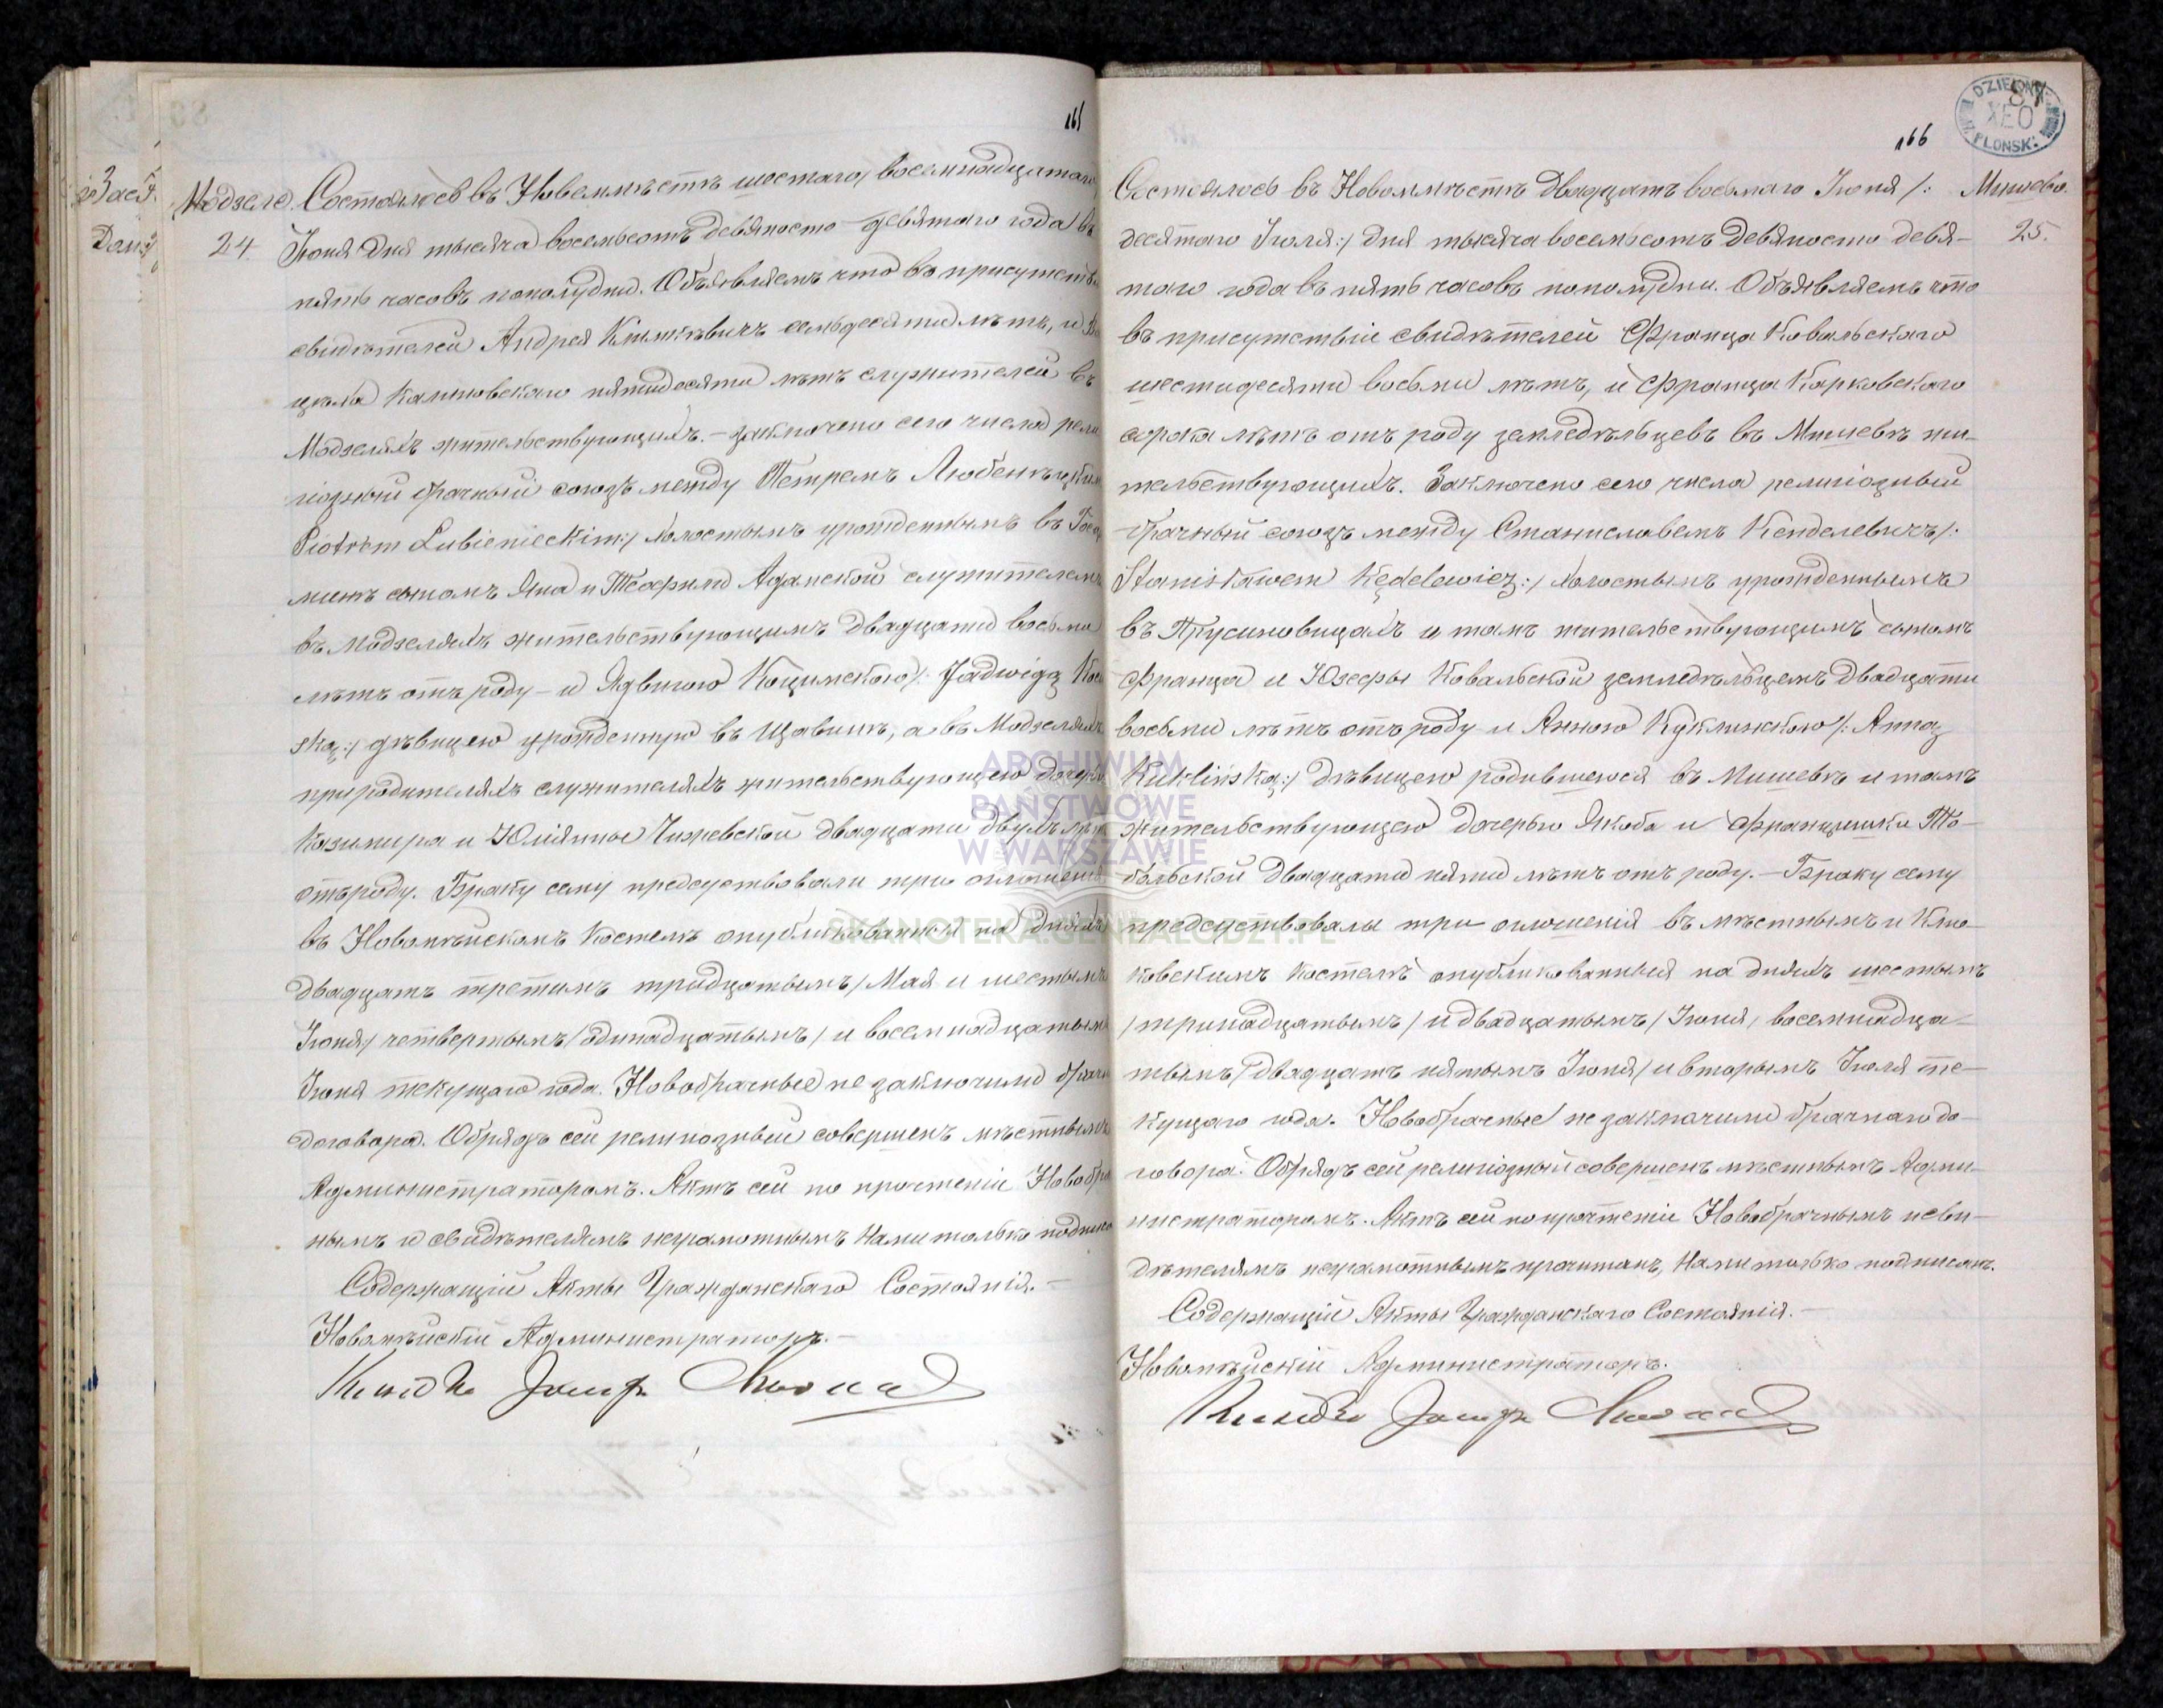 165
Модзеле.
24
Состоялось въ Новомѣстѣ шестаго / восемнадцатаго
Іюня дня тысяча восемьсотъ девяносто девятаго года въ
пять часовъ пополудни. Объявляемъ что въ присутствіи
свидѣтелей Андрея семьдесяти лѣтъ, и
Калиновскаго пятидесяти лѣтъ служителей въ
Модзеляхъ жительствующихъ. – Заключено сего числа рели
гіозный брачный союзъ между Петромъ Любенѣцкимъ
Piotrem Lubienieckim :/ холостымъ урожденнымъ въ
сыномъ Яна и Теофили Адамской служителемъ
въ Модзеляхъ жительствующимъ двадцати восьми
лѣтъ отъ роду – и Ядвигою /: Jadwigą
ską :/ дѣвицею урожденную въ Щавинѣ, а въ Модзеляхъ
при родителяхъ служителяхъ жительствующею дочерью
Казимира и Юліянны Чижевской двадцати двухъ лѣтъ
отъ роду. Браку сему предсуствовали три оглошенія
въ Новомѣйскомъ Костелѣ опубликованныя на дняхъ
двадцать третимъ тридцатымъ / Мая и шестымъ
Іюня / четвертымъ / одинадцатымъ / и восемнадцатымъ
Іюня текущаго года. Новобрачные не заключили брачн
договора. Обрядъ сей религіозный совершенъ мѣстнымъ
Администраторомъ. Актъ сей по прочтеніи Новобра
нымъ и свидѣтелямъ неграмотнымъ Нами только подписа
Содержащій Акты Гражданскаго Состоянія. –
Новомѣйскій Администраторъ. –
166
Мишево.
25.
Состоялось въ Новомѣстѣ двадцать восьмаго Іюня /:
десятаго Іюля :/ дня тысяча восемьсотъ девяносто девя–
таго года въ пять часовъ пополудни. Объявляемъ что
въ присутствіи свидѣтелей Франца Ковальскаго
шестидесяти восьми лѣтъ, и Франца Карковскаго
сорока лѣтъ отъ роду земледѣльцевъ въ Мишевѣ жи–
тельствующихъ. Заключено сего числа религіозный
брачный союзъ между Станиславомъ Кенделевичъ /:
Stanisławem Kędelewicz :/ холостымъ урожденнымъ
въ Прусиновицахъ и тамъ жительствующимъ сыномъ
Франца и Юзефы Ковальской земледѣльцемъ двадцати
восьми лѣтъ отъ роду и Анною Куклинскою /: Anną
Kuklińską :/ дѣвицею родившеюся въ Мишевѣ и тамъ
жительствующею дочерью Якоба и Францишки То–
больской двадцати пяти лѣтъ отъ роду. – Браку сему
предсуствовали три оглошенія въ мѣстнымъ и Клю–
ковскимъ Костелѣ опубликованныя на дняхъ шестымъ
/ тринадцатымъ / и двадцатымъ / Іюня, восемнадца–
тымъ / двадцать пятымъ Іюня / и вторымъ Іюля те–
кущаго года. Новобрачные не заключили брачнаго до–
говора. Обрядъ сей религіозный совершенъ мѣстнымъ Адми–
нистраторомъ. Актъ сей по прочтеніи Новобрачнымъ и сви–
дѣтелямъ неграмотнымъ прочитанъ, Нами только подписанъ.
Содержащій Акты Гражданскаго Состоянія. –
Новомѣйскій Администраторъ.
ARCHIWUM
PAŃSTWOWE
W WARSZAWIE
SKANOTEKA.GENEALODZY.PL